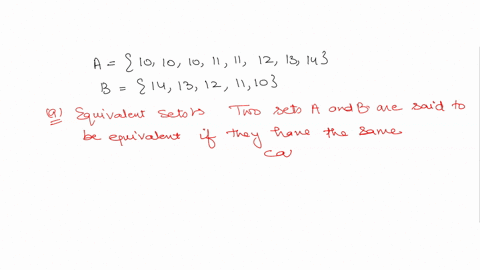 A = {10, 10, 10, 11, 11, 12, 13, 14}
B = {14, 13, 12, 11, 10}
(a) Equivalent sets:- Two sets A and B are said to
be equivalent if they have the same
ca